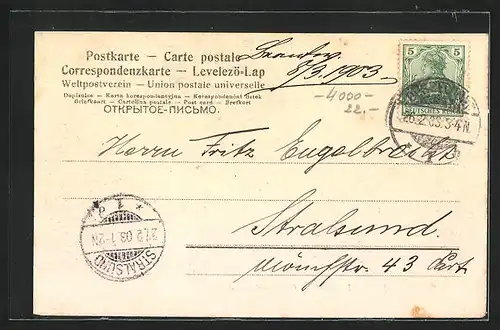 Postkarte — Carte postale
Correspondenzkarte — Levelező-Lap
Weltpostverein — Union postale universelle
Dopisnice — Karta korespondencyjna — Korespondenční lístek
Briefkaart — Cartolina postale — Post card — Brefkort
ОТКРЫТОЕ-ПИСЬМО.
8/3. 1903.
-4000-
22,-
5 5
DEUTSCHES REICH
Herrn Fritz Engelbrecht
Stralsund.
Mönchstr. 43 Part.
* 1 *
27.2.03.1-2N
STRALSUND